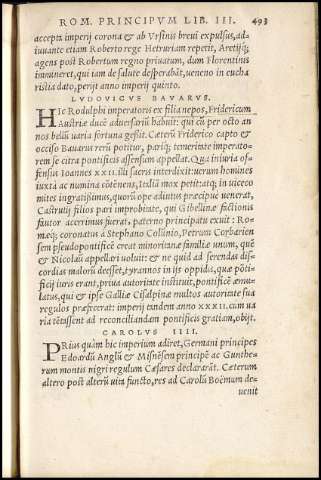 ROM. PRINCIPVM LIB. III. 493
accepta imperij corona & ab Vrsinis breui expulsus, ad
iuuante etiam Roberto rege Hetruriam repetit, Aretijq;
agens post Robertum regno priuatum, dum Florentinis
immineret, qui iam de salute desperabāt, ueneno in eucha
ristia dato, perijt anno imperij quinto.
LVDOVICVS BAVARVS.
HIc Rodulphi imperatoris ex filia nepos, Fridericum
Austriæ ducē aduersariū habuit: qui cū per octo an
nos bellū uaria fortuna gessit. Cæterū Friderico capto &
occiso Bauarus rerū potitur, pariq; temeritate imperato-
rem se citra pontificis assensum appellat. Qua iniuria of-
fensus Ioannes XXII. illi sacris interdixit: uerum homines
iuxta ac numina cōtēnens, Italiā mox petit: atq; in uiceco
mites ingratissimus, quorū ope adiutus præcipuè uenerat,
Castrutij filios pari improbitate, qui Gibellinæ factionis
fautor acerrimus fuerat, paterno principatu exuit: Ro-
mæq; coronatus à Stephano Collinio, Petrum Corbarien
sem pseudopontificē creat minorianæ familiæ unum, quē
& Nicolaū appellari uoluit: & ne quid ad serendas dis-
cordias malorū deesset, tyrannos in ijs oppida, quæ pōti-
ficij iuris erant, priua autoritate instituit, pontificē æmu-
latus, qui & ipse Galliæ Cisalpinæ multos autoritate sua
regulos præfecerat: imperij tandem anno XXXII. cum ua
ria tētasset ad reconciliandam pontificis gratiam, obijt.
CAROLVS IIII.
PRius quàm hic imperium adiret, Germani principes
Edoardū Angliæ & Misnēsem principē ac Gunthe-
rum montis nigri regulum Cæsares declararāt. Cæterum
altero post alterū uita functo, res ad Carolū Boëmum de
uenit